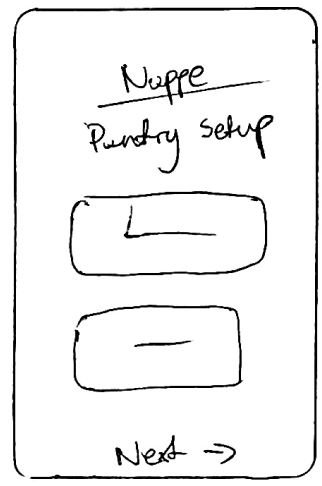 Nappe
Pantry Setup
Next →